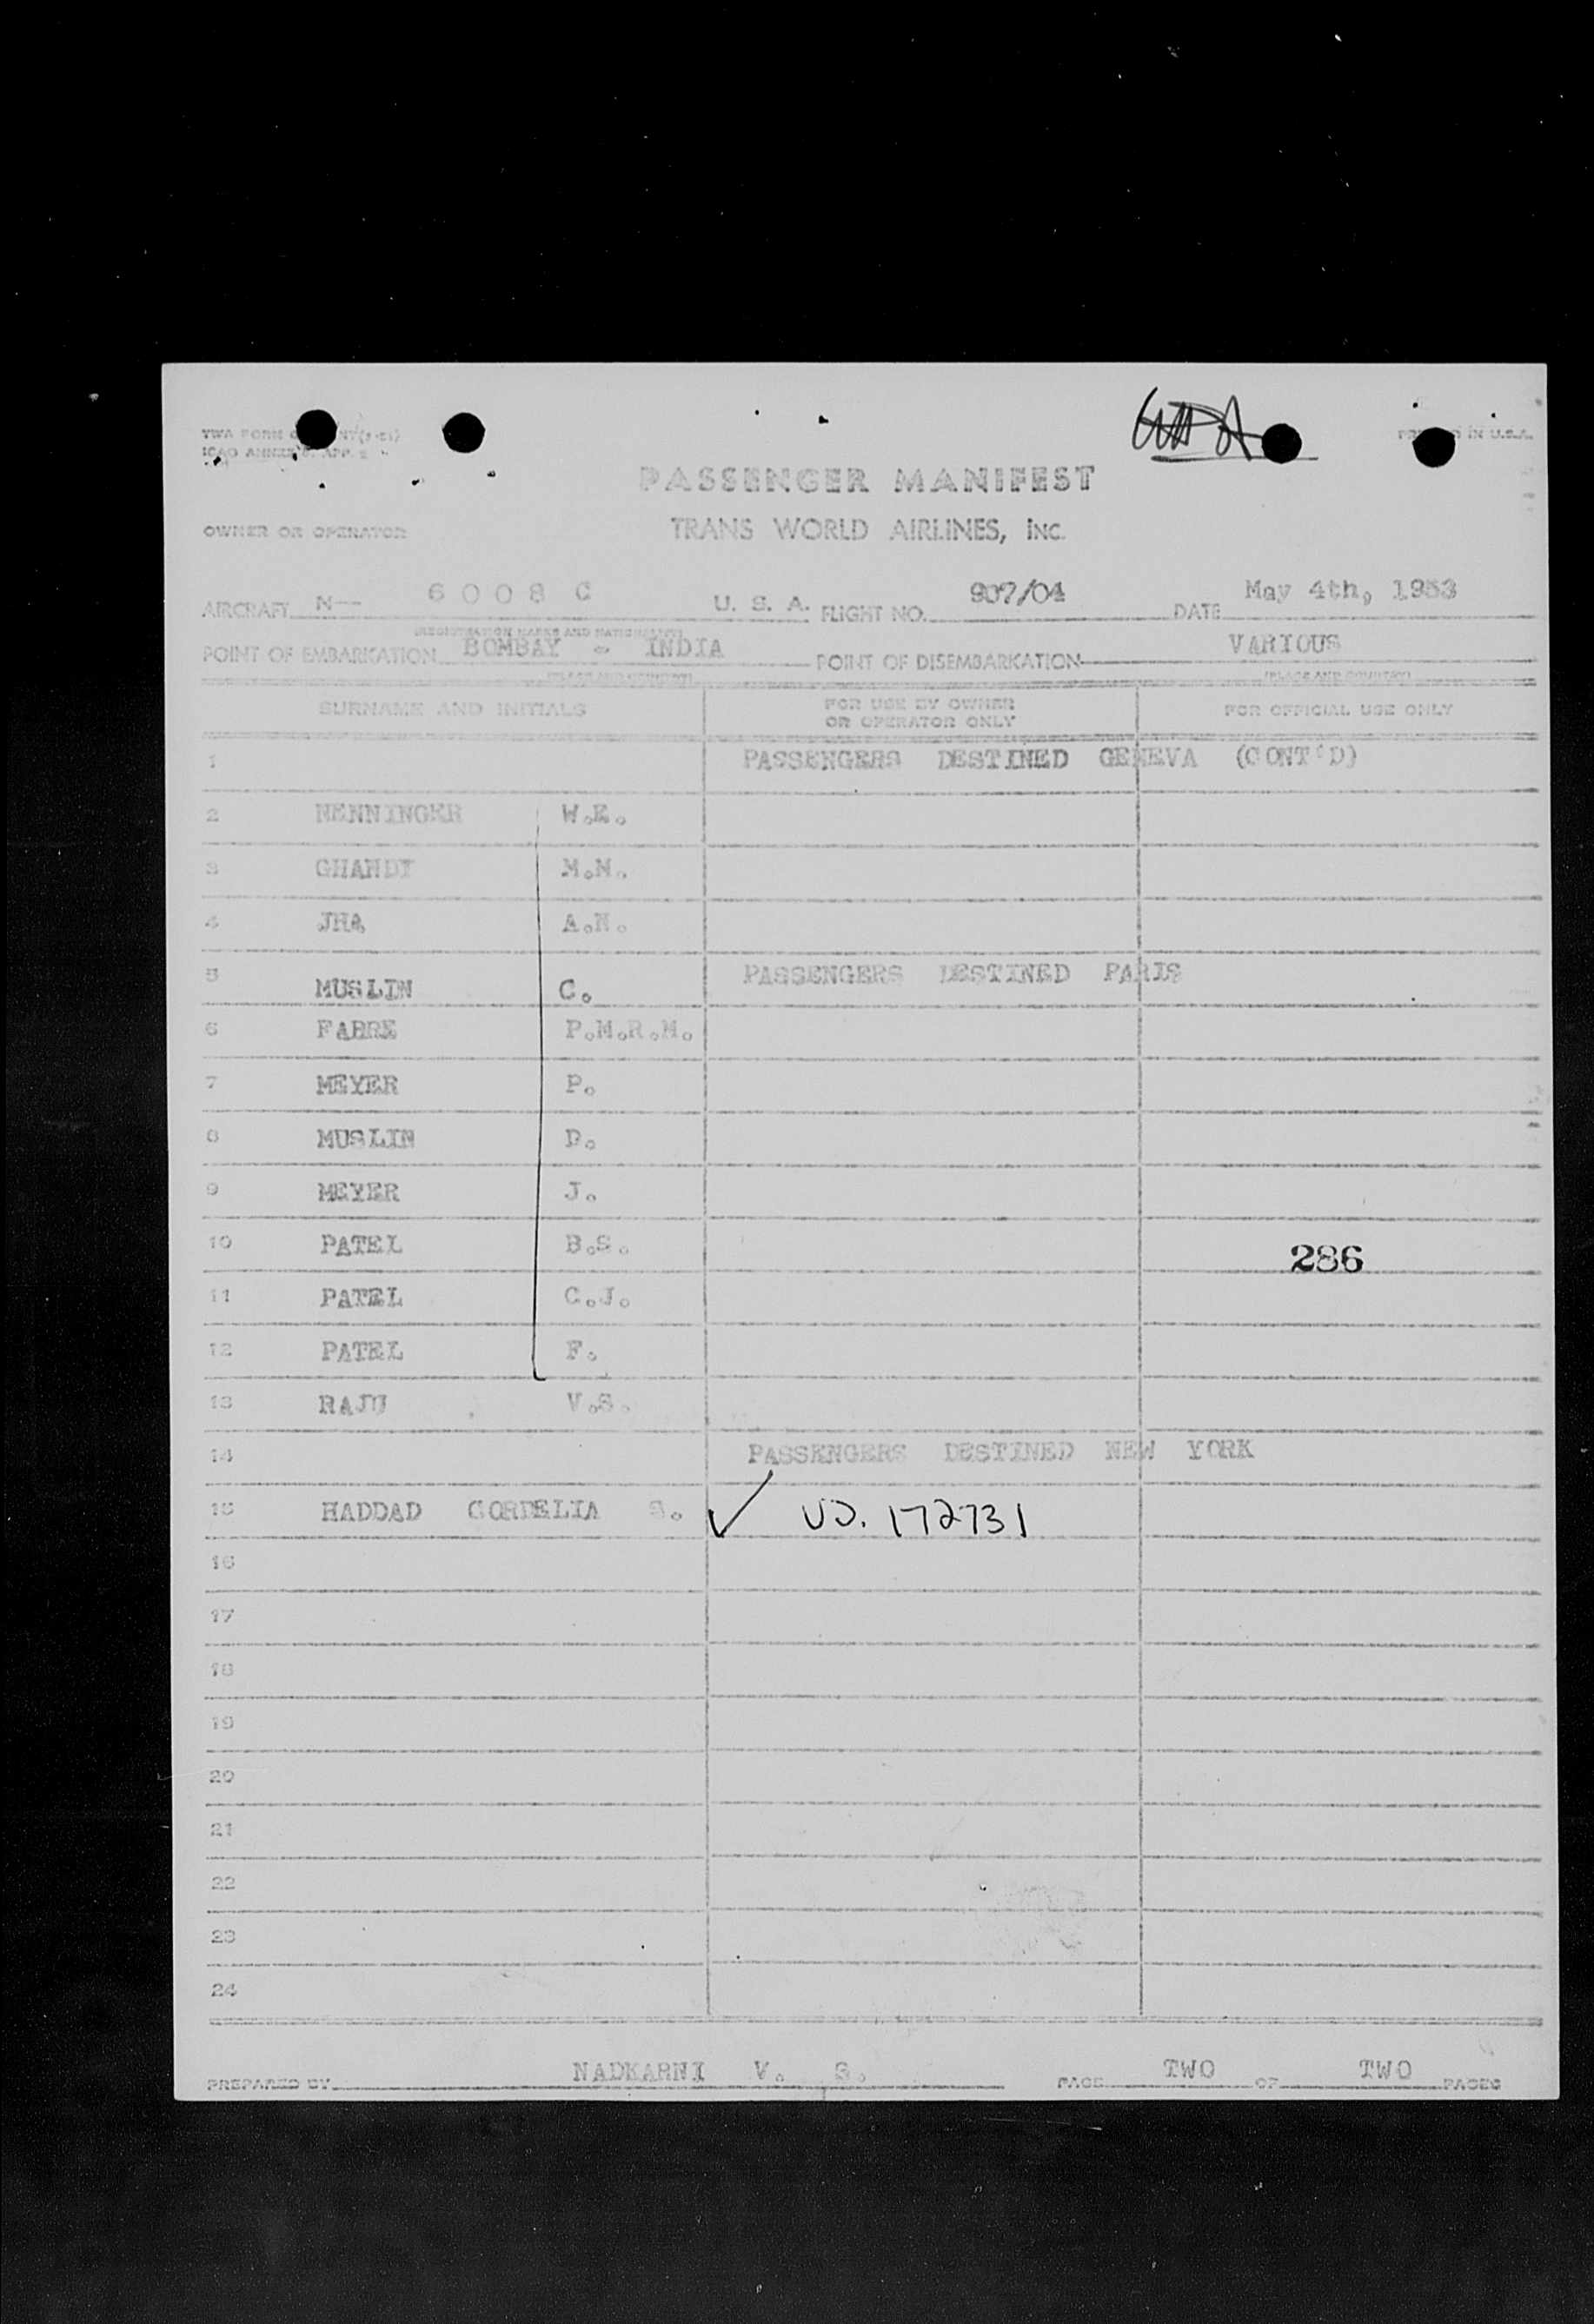 PRINTED IN U.S.A.
PASSENGER MANIFEST
OWNER OR OPERATOR TRANS WORLD AIRLINES, INC.
AIRCRAFT N— 6008 C U. S. A. FLIGHT NO. 907/04 DATE May 4th, 1953
(REGISTRATION MARKS AND NATIONALITY)
POINT OF EMBARKATION BOMBAY - INDIA POINT OF DISEMBARKATION VARIOUS
(PLACE AND COUNTRY) (PLACE AND COUNTRY)
SURNAME AND INITIALS FOR USE BY OWNER OR OPERATOR ONLY FOR OFFICIAL USE ONLY
1 PASSENGERS DESTINED GENEVA (CONT'D)
2 NENNINGER W.E.
3 GHANDI M.M.
4 JHA A.N.
5 MUSLIN C. PASSENGERS DESTINED PARIS
6 FABRE P.M.R.M.
7 MEYER P.
8 MUSLIN D.
9 MEYER J.
10 PATEL B.S. 286
11 PATEL C.J.
12 PATEL F.
13 RAJU V.S.
14 PASSENGERS DESTINED NEW YORK
15 HADDAD CORDELIA S. ✓ VJ. 172731
16
17
18
19
20
21
22
23
24
PREPARED BY NADKARNI V. S. PAGE TWO OF TWO PAGES